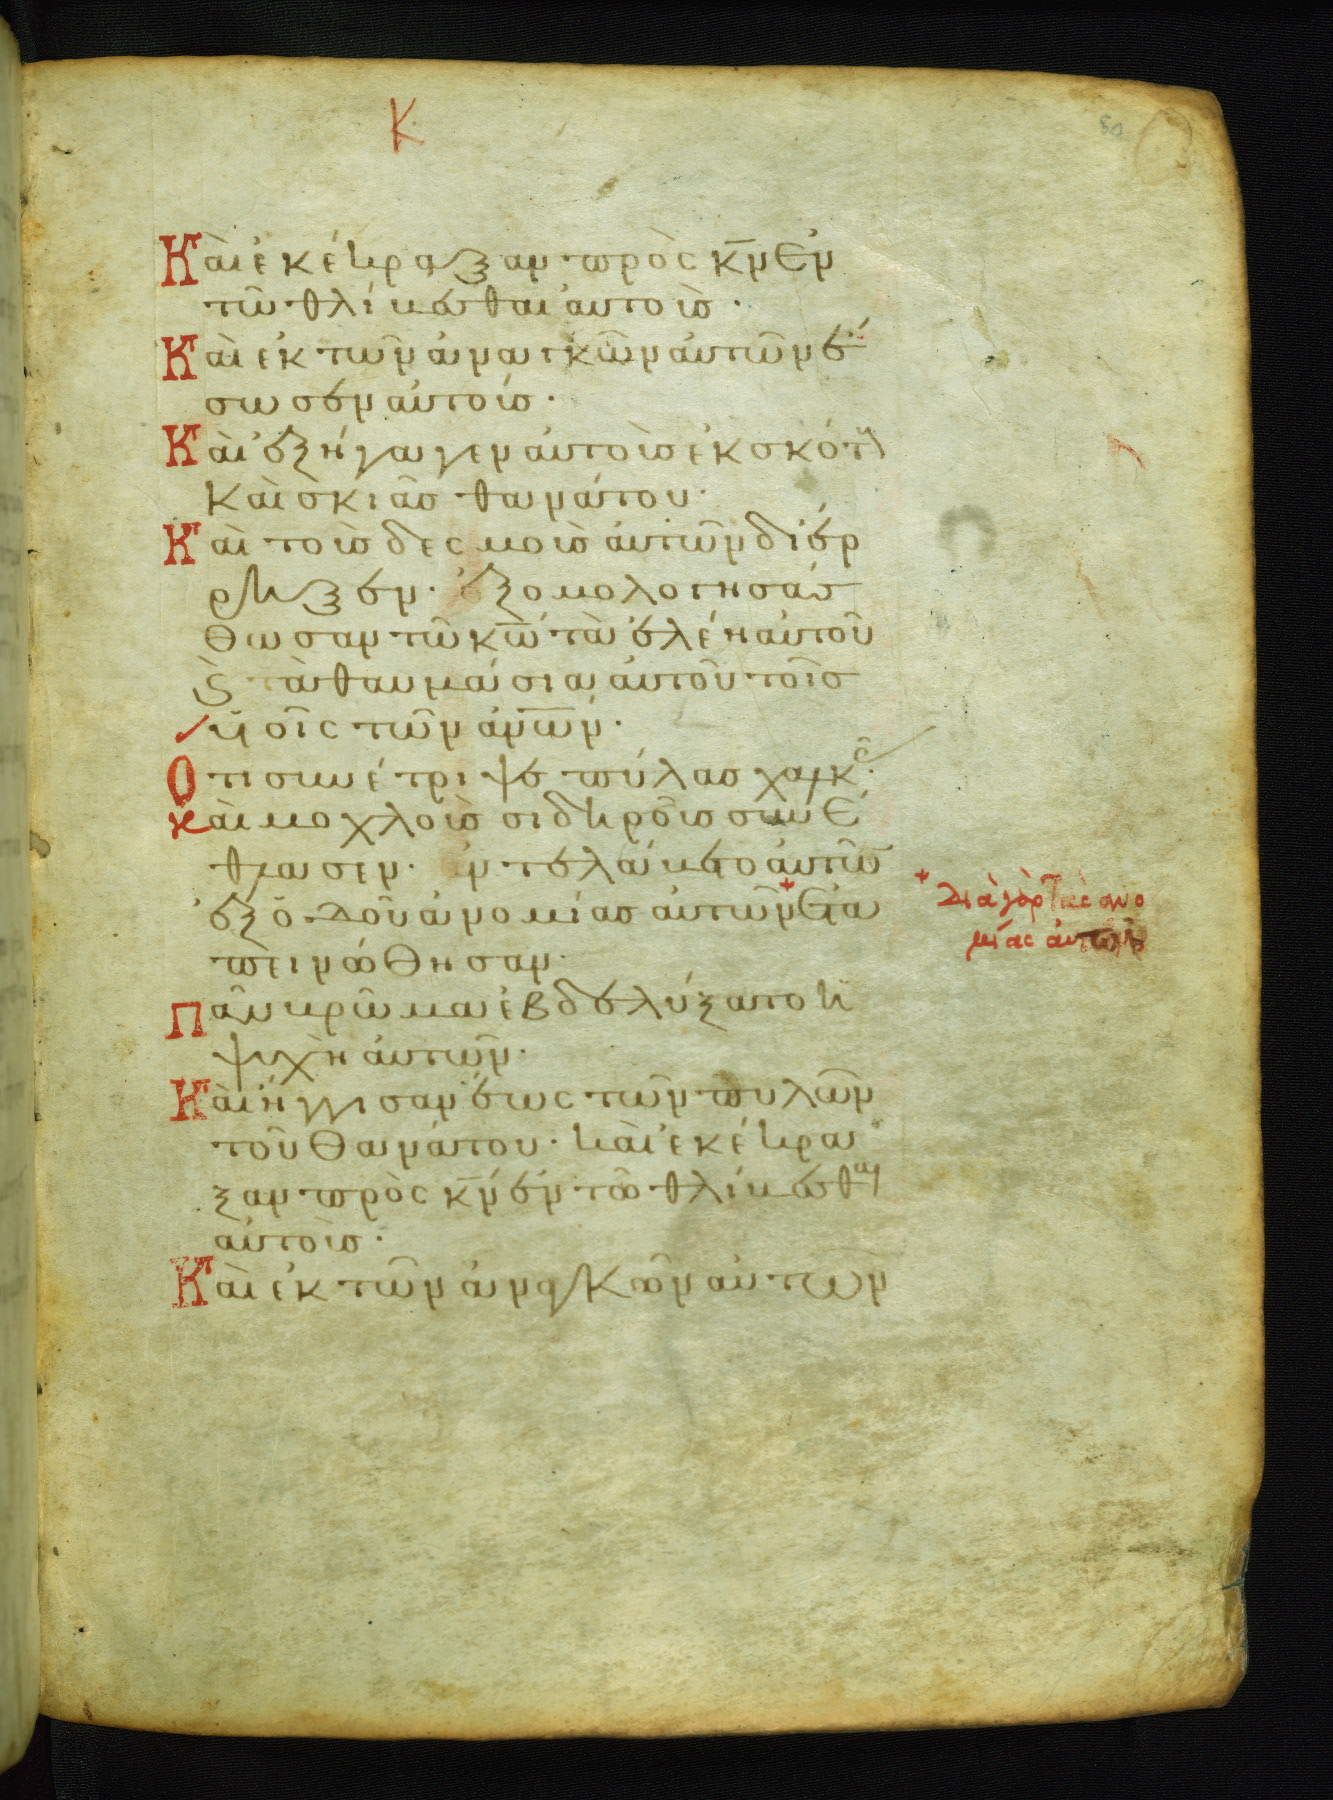 Κ
80
Καὶ ἐκέκραξαν πρὸς κ̅ν ἐν
τῶ θλίβεσθαι αὐτοὺσ·
Καὶ ἐκ τῶν ἀναγκῶν αὐτῶν ἔ
σωσεν αὐτούσ·
Καὶ ἐξήγαγεν αὐτοὺσ ἐκ σκότους
καὶ σκιᾶσ θανάτου·
Καὶ τοὺσ δεσμοὺσ αὐτῶν διέρ
ρηξεν· ἐξομολογησάσ
θωσαν τῶ κ̅ω τὰ ἐλέη αὐτοῦ
ϗ τὰ θαυμάσια αὐτοῦ τοῖσ
υἱοῖς τῶν ἀν̅ων·
Ὅτι συνέτριψε πύλασ χαλκᾶς·
καὶ μοχλοὺσ σιδηροῦσ συνέ
θλασεν· ἀντελάβετο αὐτῶν
ἐξ ὁδοῦ ἀνομίασ αὐτῶν ἐτα
πεινώθησαν·
+ Διὰ γὰρ τὰς ἀνο
μίας αὐτῶν
Πᾶν βρῶμα ἐβδελύξατο ἡ
ψυχὴ αὐτῶν·
Καὶ ἤγγισαν ἕως τῶν πυλῶν
τοῦ θανάτου· καὶ ἐκέκρα
ξαν πρὸς κ̅ν ἐν τῶ θλίβεσθαι
αὐτοὺσ·
Καὶ ἐκ τῶν ἀναγκῶν αὐτῶν